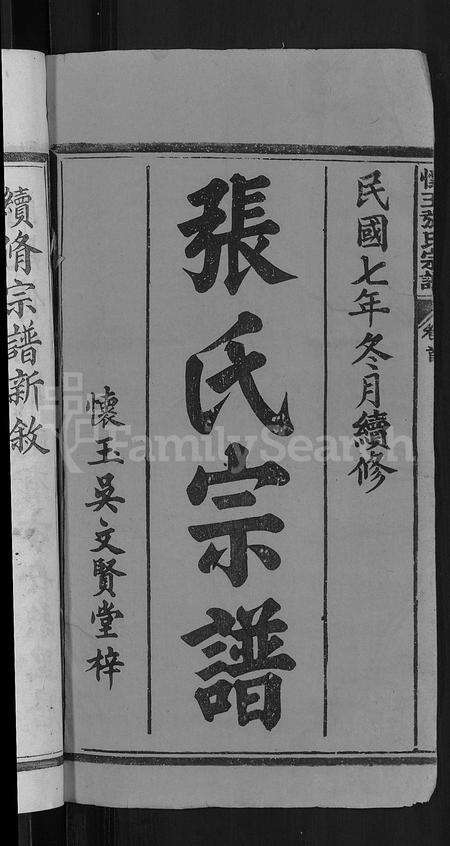 懷玉張氏宗譜
卷首
民國七年冬月續修
張氏宗譜
懷玉吳文賢堂梓
續脩宗譜新敘
FamilySearch